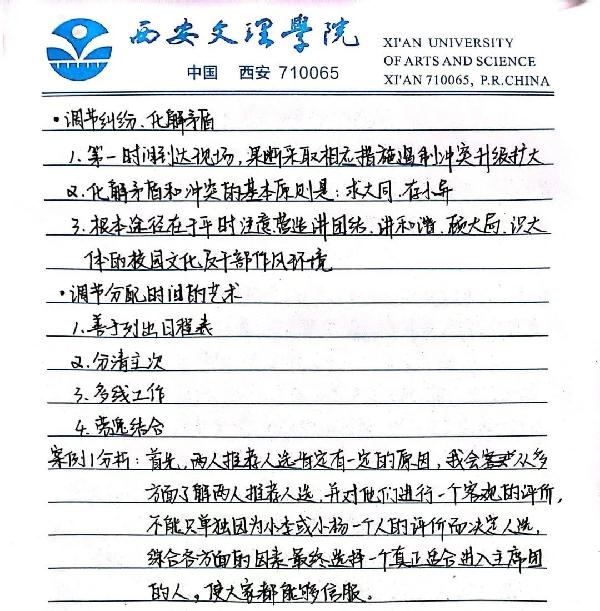 西安文理学院
中国 西安 710065
XI'AN UNIVERSITY
OF ARTS AND SCIENCE
XI'AN 710065, P.R.CHINA
·调节纠纷、化解矛盾
1.第一时间到达现场,果断采取相应措施遏制冲突升级扩大
2.化解矛盾和冲突的基本原则是:求大同,存小异
3.根本途径在于平时注意营造讲团结、讲和谐、顾大局、识大
体的校园文化及干部作风环境
·调节分配时间的艺术
1.善于列出日程表
2.分清主次
3.多线工作
4.劳逸结合
案例1分析:首先,两人推荐人选肯定有一定的原因,我会从多
方面了解两人推荐人选,并对他们进行一个客观的评价,
不能只单独因为小李或小杨一个人的评价而决定人选,
综合各方面的因素最终选择一个真正适合进入主席团
的人,使大家都能够信服。